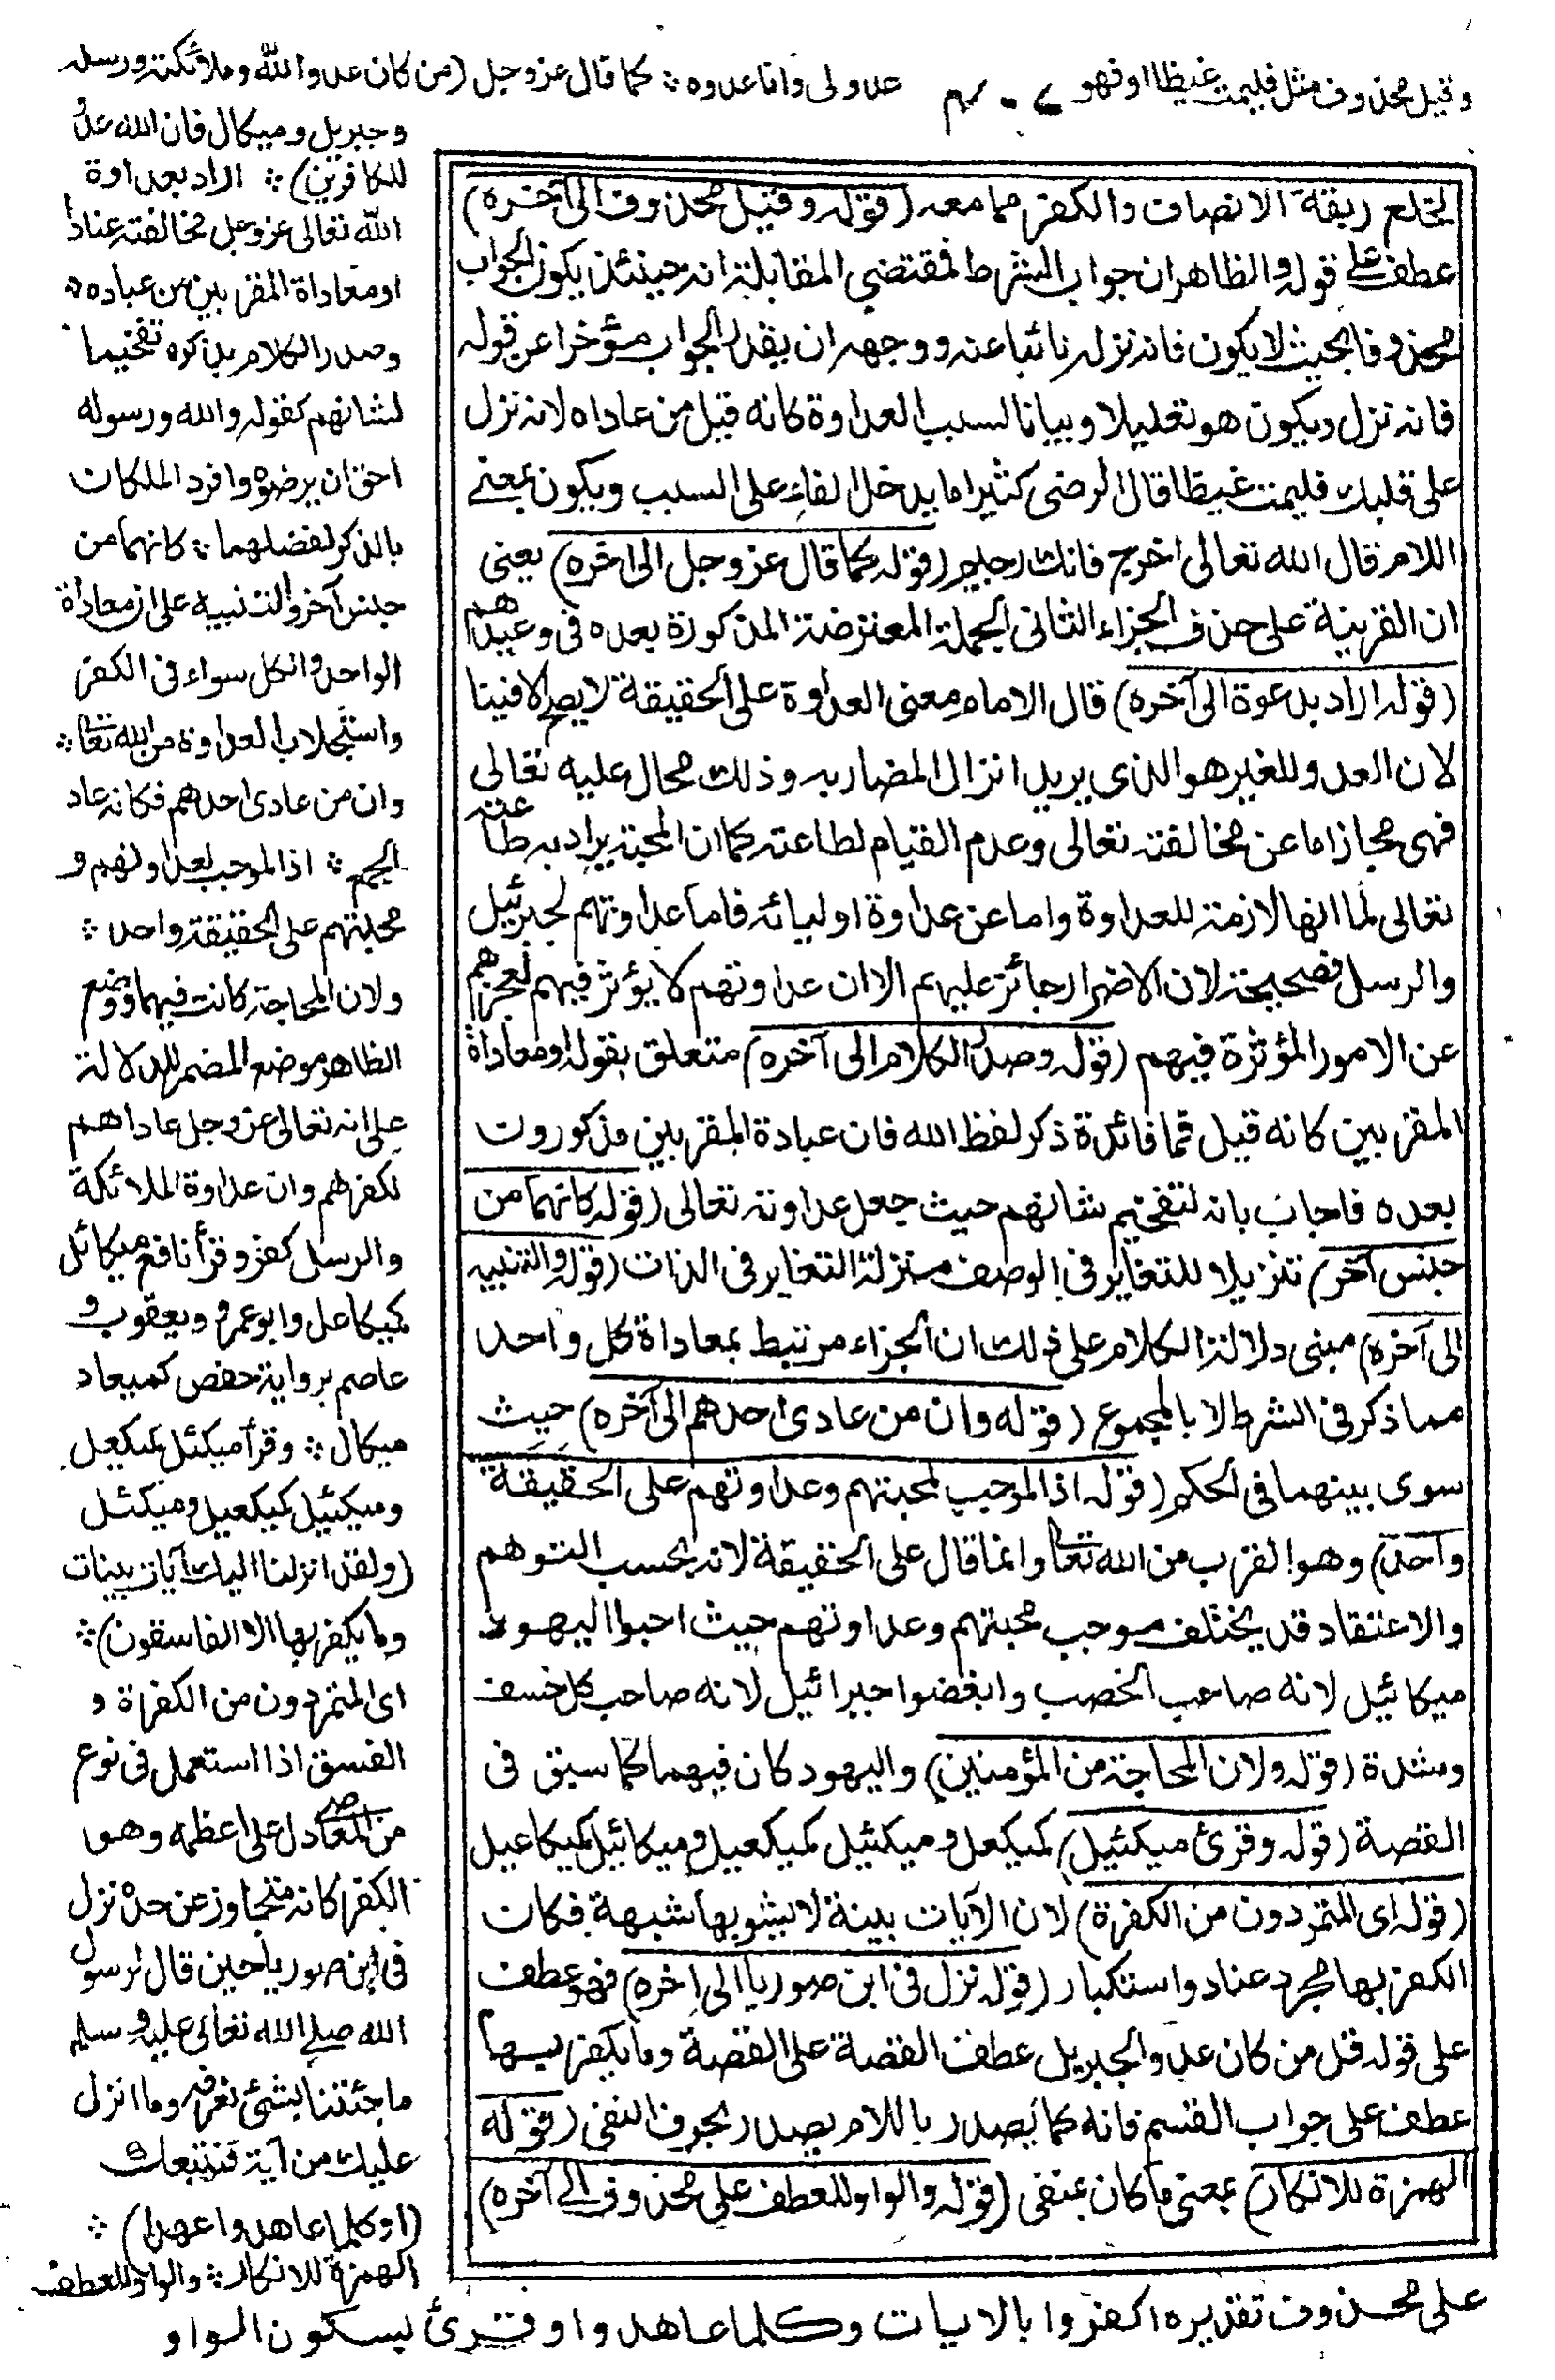 وقيل محذوف مثل فليمت غيظا او فهو
٤٠٢
عدو لى وانا عدوه ❊ كما قال عز وجل (من كان عدوا لله وملائكته ورسله
وجبريل وميكال فان الله عدو
للكافرين) ❊ اراد بعداوة
الله تعالى عز وجل مخالفته عنادا
او معاداة المقربين من عباده
وصدر الكلام بذكره تفخيما
لشانهم كقوله والله ورسوله
احق ان يرضوه وافرد الملكان
بالذكر لفضلهما ❊ كانهما من
جنس آخر والتنبيه على ان معاداة
الواحد والكل سواء فى الكفر
واستجلاب العداوة من الله تعا ❊
وان من عادى احدهم فكانه عاد
الجميع ❊ اذ الموجب لعداوتهم و
محبتهم على الحقيقة واحد ❊
ولان المحاجة كانت فيهما ووضع
الظاهر موضع المضمر للدلالة
على انه تعالى عز وجل عاداهم
لكفرهم وان عداوة الملائكة
والرسل كفر وقرأ نافع ميكائل
كميكاعل وابو عمرو ويعقوب و
عاصم برواية حفص كميعاد
ميكال ❊ وقرأ ميكئل كميكعل
وميكئيل كميكعيل وميكئل
(ولقد انزلنا اليك آيات بينات
وما يكفر بها الا الفاسقون) ❊
اى المتمردون من الكفرة و
الفسق اذا استعمل فى نوع
من المعاصى دل على اعظمه وهو
الكفر كانه متجاوز عن حده نزل
فى ابن صوريا حين قال لرسول
الله صلى الله تعالى عليه وسلم
ما جئتنا بشئ نعرفه وما انزل
عليك من آية فنتبعك
(او كلما عاهدوا عهدا) ❊
الهمزة للانكار ❊ والواو للعطف
على محذوف تقديره اكفروا بالايات وكلما عاهدوا وقرئ بسكون الواو
لخلع ربقة الانصاف والكفر مما معه (قوله وقيل محذوف الى آخره)
عطف على قوله والظاهر ان جواب الشرط فمقتضى المقابلة انه حينئذ يكون الجواب
محذوفا بحيث لا يكون فانه نزله نائبا عنه ووجهه ان يقدر الجواب مؤخرا عن قوله
فانه نزل ويكون هو تعليلا وبيانا لسبب العداوة كانه قيل من عاداه لانه نزل
على قلبك فليمت غيظا قال الرضى كثيرا ما يدخل الفاء على السبب ويكون بمعنى
اللام قال الله تعالى اخرج فانك رجيم (قوله كما قال عز وجل الى اخره) يعنى
ان القرينة على حذف الجزاء الثانى الجملة المعترضة المذكورة بعده فى وعيدهم
(قوله اراد بعداوة الى آخره) قال الامام معنى العداوة على الحقيقة لا يصح الا فينا
لان العدو للغير هو الذى يريد انزال المضار به وذلك محال عليه تعالى
فهى مجاز اما عن مخالفته تعالى وعدم القيام لطاعته كما ان المحبة يراد به طاعته
تعالى لما انها لازمة للعداوة واما عن عداوة اوليائه فاما عداوتهم لجبرئيل
والرسل فصحيحة لان الاضرار جائز عليهم الا ان عداوتهم لا يؤثر فيهم لعجزهم
عن الامور المؤثرة فيهم (قوله وصدر الكلام الى آخره) متعلق بقوله او معاداة
المقربين كانه قيل فما فائدة ذكر لفظ الله فان عبادة المقربين مذكورون
بعده فاجاب بانه لتفخيم شانهم حيث جعل عداوته تعالى (قوله كانهما من
جنس آخر) تنزيلا للتغاير فى الوصف منزلة التغاير فى الذات (قوله والتنبيه
الى آخره) مبنى دلالة الكلام على ذلك ان الجزاء مرتبط بمعاداة كل واحد
مما ذكر فى الشرط لا بالمجموع (قوله وان من عادى احدهم الى آخره) حيث
سوى بينهما فى الحكم (قوله اذ الموجب لمحبتهم وعداوتهم على الحقيقة
واحد) وهو القرب من الله تعا وانما قال على الحقيقة لانه بحسب التوهم
والاعتقاد قد يختلف موجب محبتهم وعداوتهم حيث احبوا اليهود
ميكائيل لانه صاحب الخصب وابغضوا جبرائيل لانه صاحب كل خسف
وشدة (قوله ولان المحاجة من المؤمنين) واليهود كان فيهما كما سبق فى
القصة (قوله وقرئ ميكئيل) كميكعل وميكئيل كميكعيل وميكائيل كميكاعيل
(قوله اى المتمردون من الكفرة) لان الآيات بينة لا يشوبها شبهة فكان
الكفر بها مجرد عناد واستكبار (قوله نزل فى ابن صوريا الى اخره) فهو عطف
على قوله قل من كان عدوا لجبريل عطف القصة على القصة وما يكفر بها
عطف على جواب القسم فانه كما يصدر باللام يصدر بحرف النفى (قوله
الهمزة للانكار) بمعنى ما كان ينبغى (قوله والواو للعطف على محذوف الى آخره)